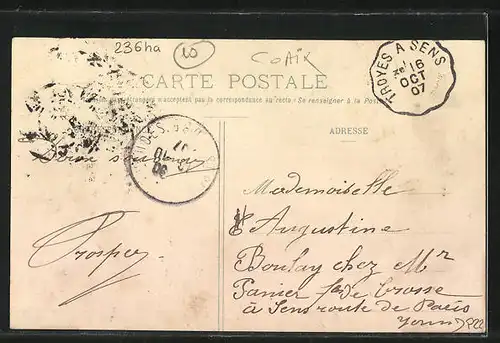 236ha
10
COAIX
CARTE POSTALE
n'acceptent pas la correspondance au recto. (Se renseigner à la Poste
ADRESSE
TROYES A SENS
16
OCT
07
Prosper
Mademoiselle
Augustine
Boulay chez Mr
Panier fab de brosse
à Sens route de Paris
Yonne